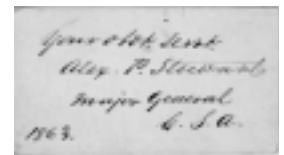 Your obdt. Servt.
Alex. P. Stewart
Major General
C. S. A.
1863.